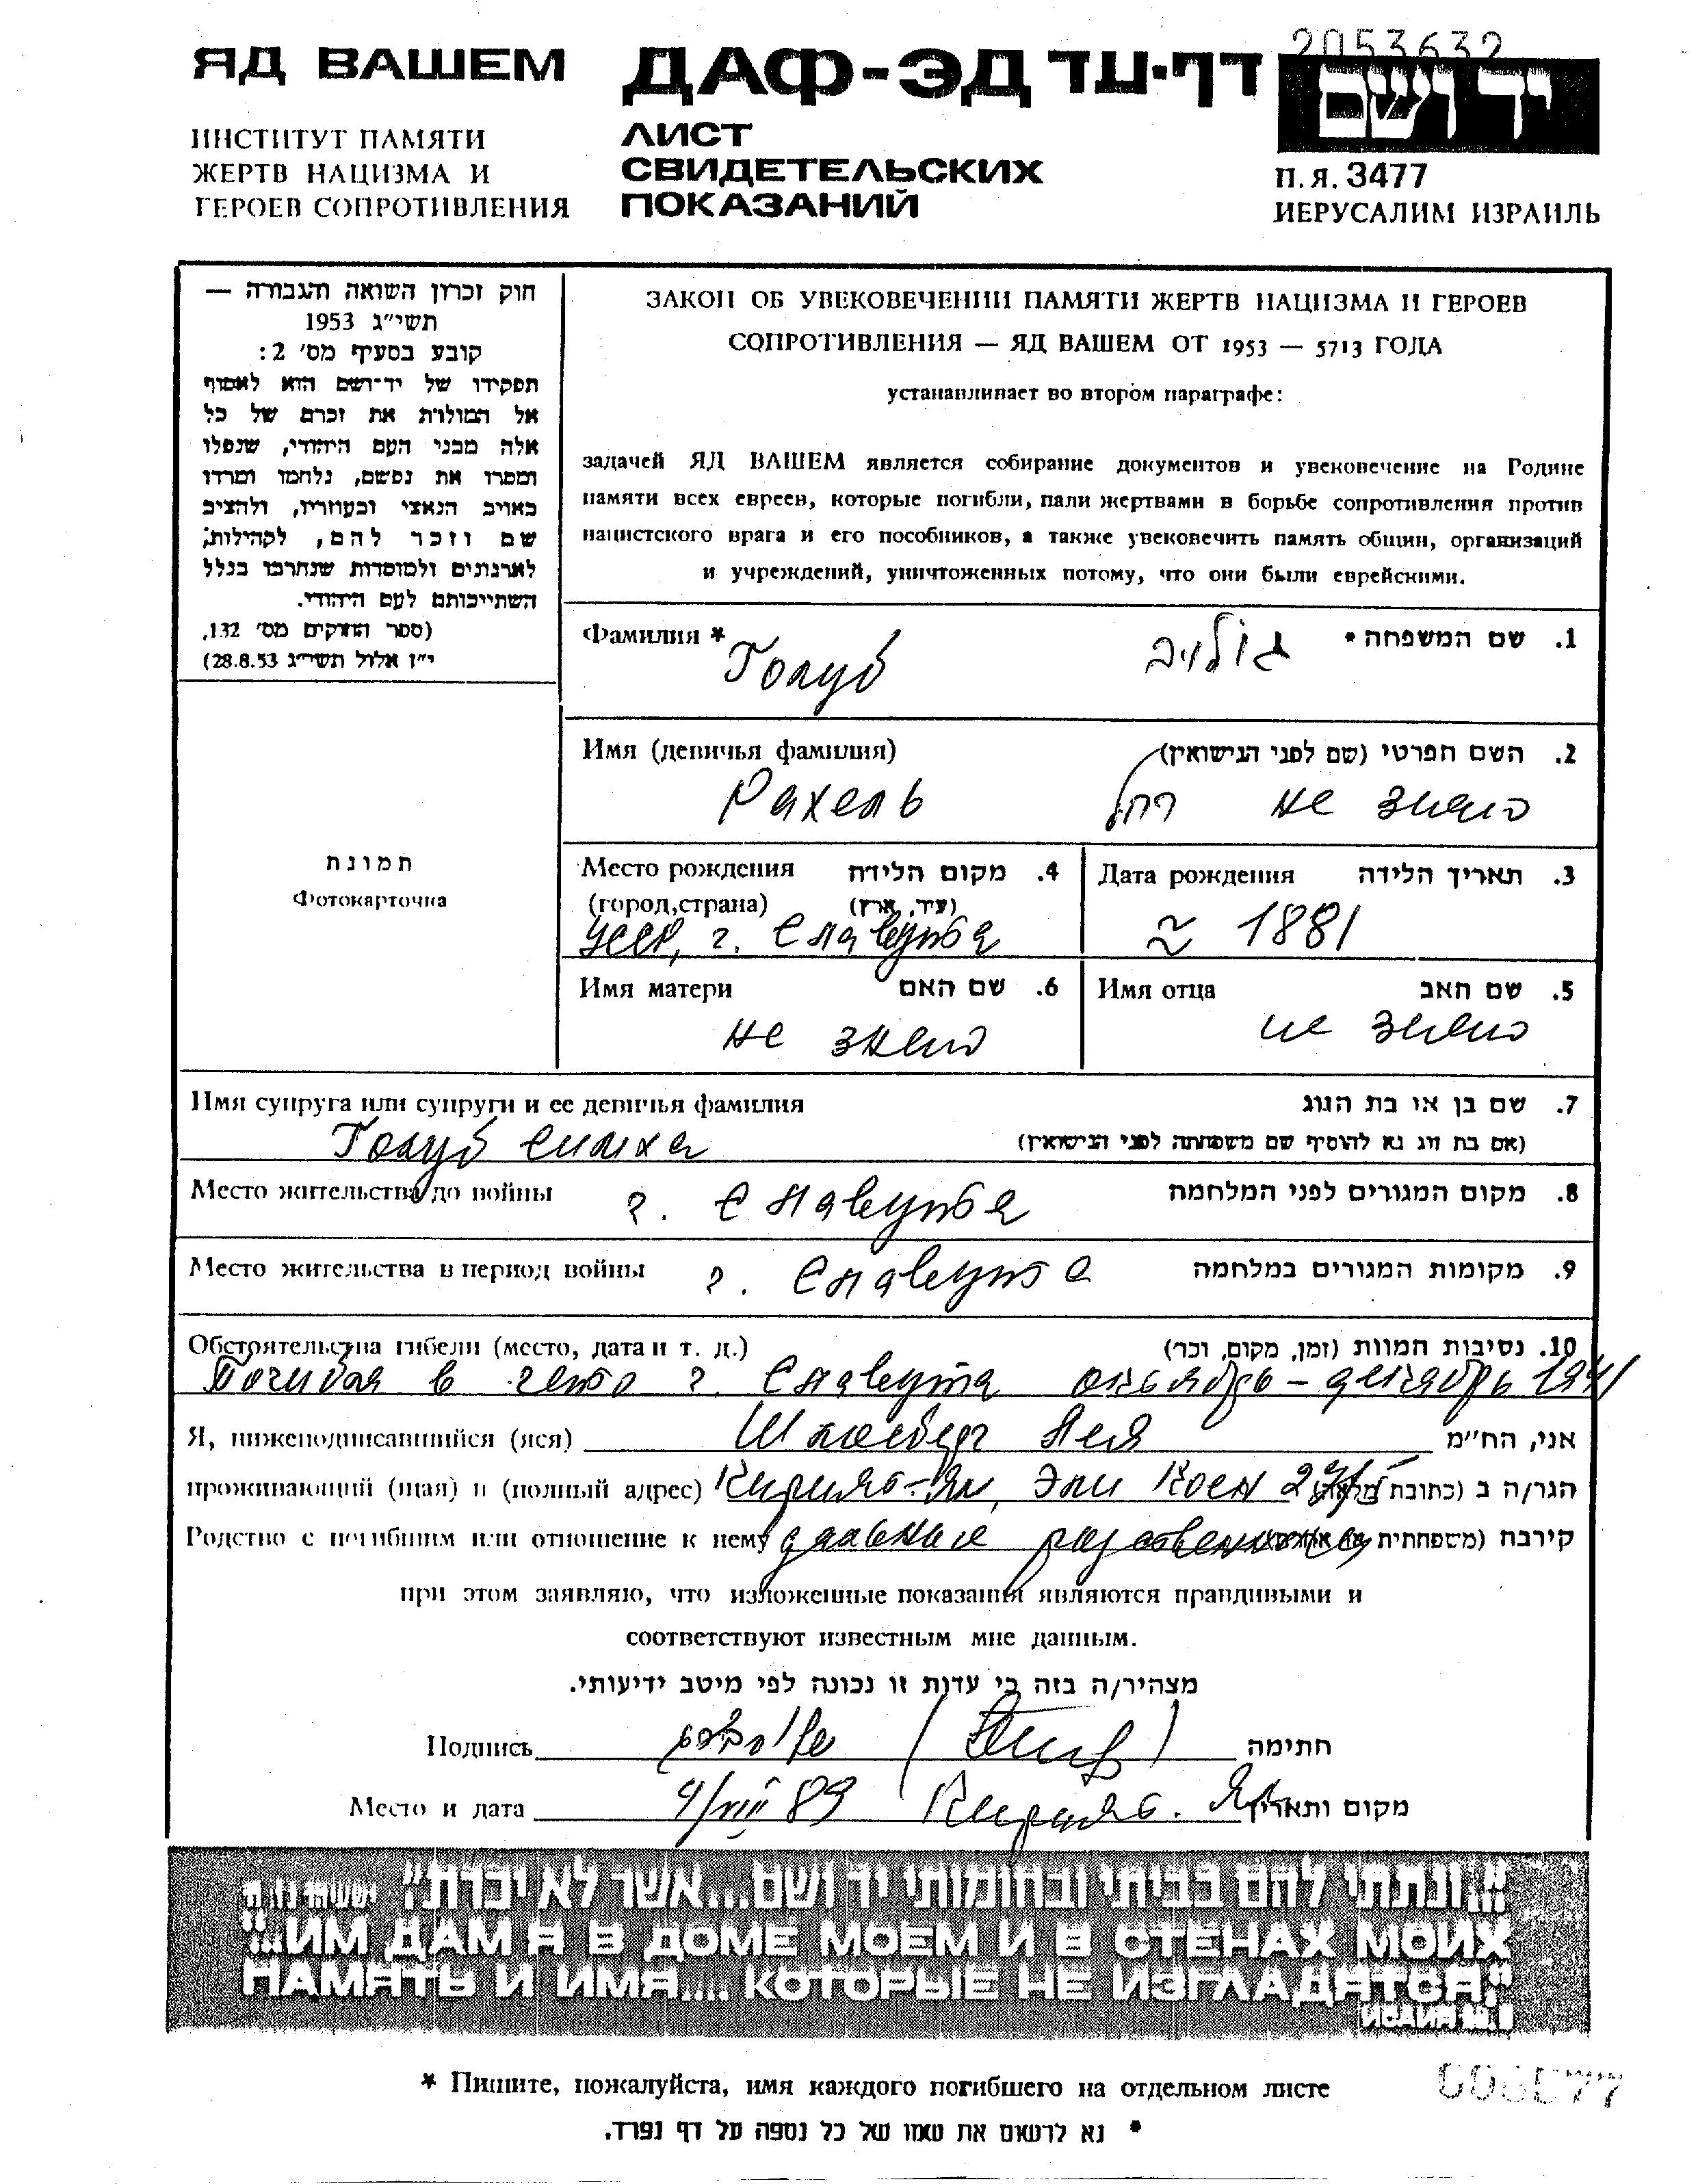 2053632
ЯД ВАШЕМ
ДАФ-ЭД דף-עד
יד ושם
ИНСТИТУТ ПАМЯТИ
ЖЕРТВ НАЦИЗМА И
ГЕРОЕВ СОПРОТИВЛЕНИЯ
ЛИСТ
СВИДЕТЕЛЬСКИХ
ПОКАЗАНИЙ
П.Я. 3477
ИЕРУСАЛИМ ИЗРАИЛЬ
חוק זכרון השואה והגבורה —
תשי״ג 1953
קובע בסעיף מס׳ 2:
תפקידו של יד־ושם הוא לאסוף
אל המולדת את זכרם של כל
אלה מבני העם היהודי, שנפלו
ומסרו את נפשם, נלחמו ומרדו
באויב הנאצי ובעוזריו, ולהציב
שם וזכר להם, לקהילות,
לארגונים ולמוסדות שנחרבו בגלל
השתייכותם לעם היהודי.
(ספר החוקים מס׳ 132,
י״ז אלול תשי״ג 28.8.53)
ЗАКОН ОБ УВЕКОВЕЧЕНИИ ПАМЯТИ ЖЕРТВ НАЦИЗМА И ГЕРОЕВ
СОПРОТИВЛЕНИЯ — ЯД ВАШЕМ ОТ 1953 — 5713 ГОДА
устанавливает во втором параграфе:
задачей ЯД ВАШЕМ является собирание документов и увековечение на Родине
памяти всех евреев, которые погибли, пали жертвами в борьбе сопротивления против
нацистского врага и его пособников, а также увековечить память общин, организаций
и учреждений, уничтоженных потому, что они были еврейскими.
Фамилия * 1. שם המשפחה *
Голуб גולוב
Имя (девичья фамилия) 2. השם הפרטי (שם לפני הנישואין)
Рахель רחל не знаю
תמונה
Фотокарточка
Место рождения 4. מקום הלידה
(город,страна) (עיר, ארץ)
УССР, г. Славута
Дата рождения 3. תאריך הלידה
≈ 1881
Имя матери 6. שם האם
не знаю
Имя отца 5. שם האב
не знаю
Имя супруга или супруги и ее девичья фамилия 7. שם בן או בת הזוג
Голуб Симха (אם בת זוג נא להוסיף שם משפחתה לפני הנישואין)
Место жительства до войны г. Славута 8. מקום המגורים לפני המלחמה
Место жительства в период войны г. Славута 9. מקומות המגורים במלחמה
Обстоятельства гибели (место, дата и т. д.) 10. נסיבות המוות (זמן, מקום, וכו׳)
Погибла в гетто г. Славута октябрь – декабрь 1941
Я, нижеподписавшийся (яся) Шмойбер Лея אני, הח״מ
проживающий (щая) в (полный адрес) Кирьят-Ям, Эли Коен הגר/ה ב (כתובת מלאה)
Родство с погибшим или отношение к нему дальние родственники קירבה (משפחתית או אחרת)
при этом заявляю, что изложенные показания являются правдивыми и
соответствуют известным мне данным.
מצהיר/ה בזה כי עדות זו נכונה לפי מיטב ידיעותי.
Подпись חתימה
Место и дата 4/VIII 89 Кирьят. Ям מקום ותאריך
״...ונתתי להם בביתי ובחומותי יד ושם...אשר לא יכרת״ ישעיהו נו, ה
"...ИМ ДАМ Я В ДОМЕ МОЕМ И В СТЕНАХ МОИХ
ПАМЯТЬ И ИМЯ.... КОТОРЫЕ НЕ ИЗГЛАДЯТСЯ,"
* Пишите, пожалуйста, имя каждого погибшего на отдельном листе
* נא לרשום את שמו של כל נספה על דף נפרד.